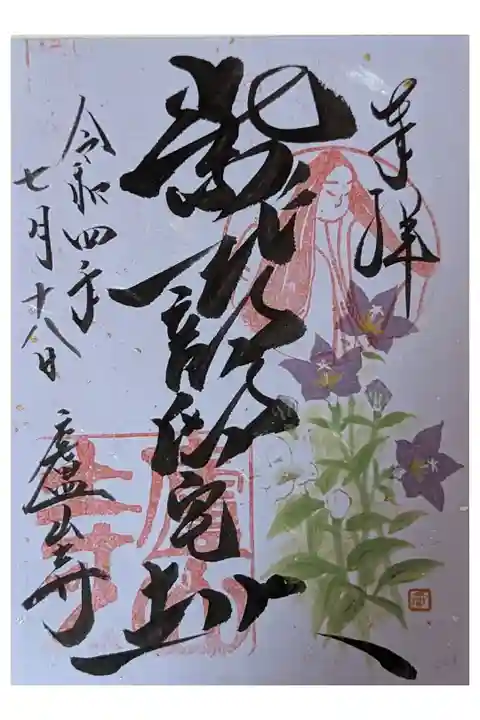 奉拝
紫式部邸宅址
令和四年
七月十八日
廬山寺
廬山寺